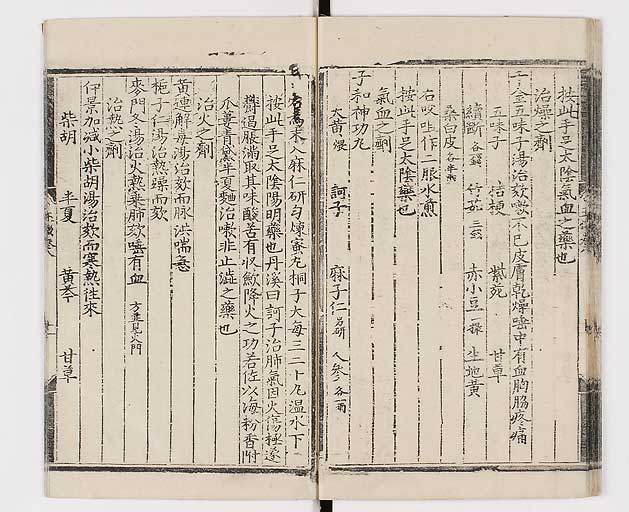 按此手足太陰氣血之藥也
治燥之劑
千金五味子湯治欬嗽不已皮膚乾燥唾中有血胸脇疼痛
五味子 桔梗 紫菀 甘草
續斷 竹茹 赤小豆 生地黃
桑白皮
右㕮咀作二服水煎
按此手足太陰藥也
氣血之劑
子和神功丸
大黃 訶子 麻子仁 人參各一兩
為末入麻仁研勻煉蜜丸桐子大每三二十丸溫水下
按此手足太陰陽明藥也丹溪曰訶子治肺氣因火傷極遂
鬱遏脹滿取其味酸苦有收斂降火之功若佐以海粉香附
瓜蔞青黛半夏麯治嗽非止澁之藥也
治火之劑
黃連解毒湯治欬而脉洪喘急
梔子仁湯治熱躁而欬
麥門冬湯治火熱乘肺欬唾有血 方並見火門
治熱之劑
伊景加減小柴胡湯治欬而寒熱往來
柴胡 半夏 黃芩 甘草